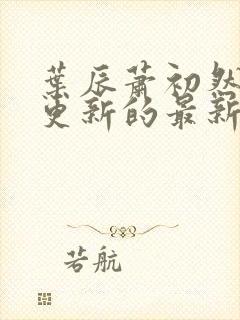 葉辰蕭初然
更新的最新
若航